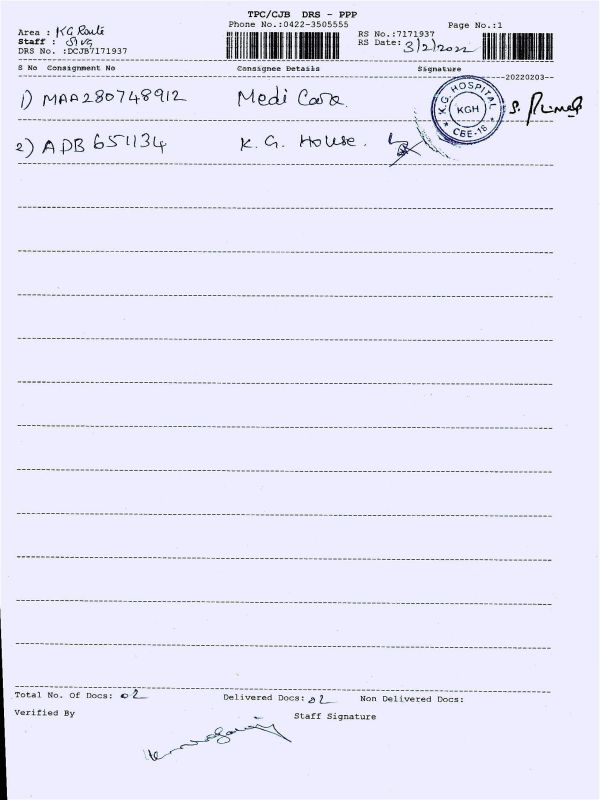 TPC/CJB DRS - PPP
Phone No.:0422-3505555
Page No.:1
Area : KG Route
Staff : Siva
DRS No. :DCJB7171937
RS No.:7171937
RS Date: 3/2/2022
S No Consignment No Consignee Details Signature
20220203
1) MAA280748912 Medi Care
K.G. HOSPITAL
KGH
CBE-18
2) ADB 651134 K. G. House.
Total No. Of Docs: 02 Delivered Docs: 02 Non Delivered Docs:
Verified By Staff Signature